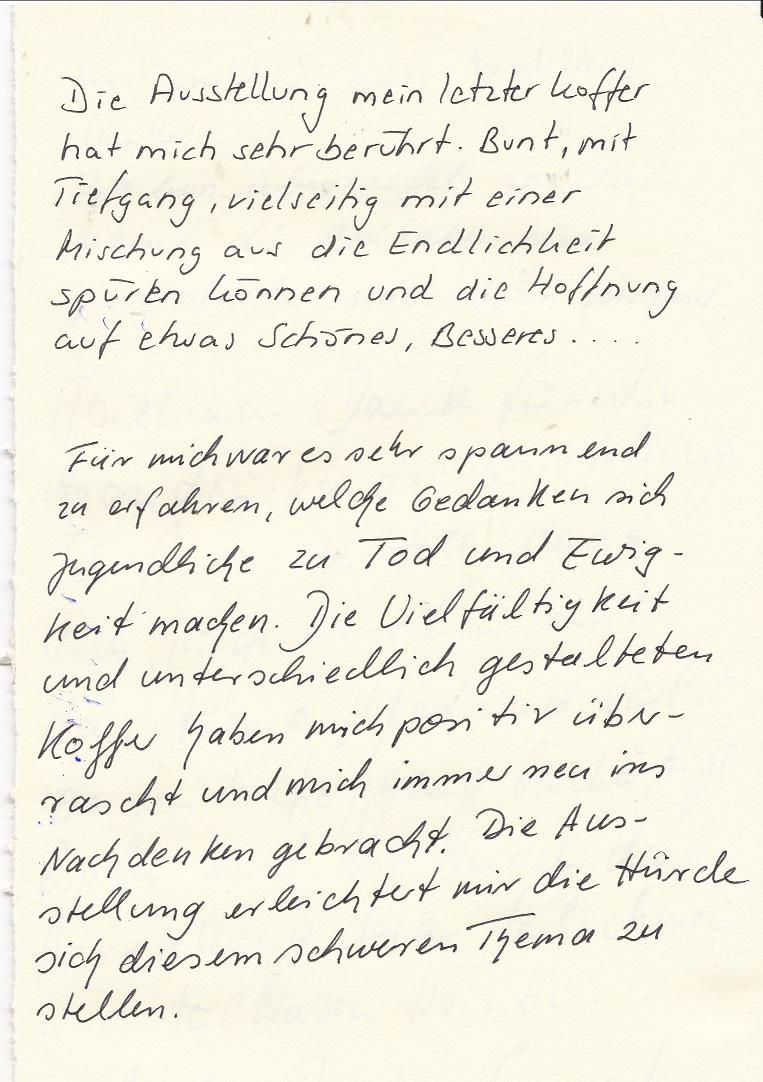 Die Ausstellung mein letzter Koffer
hat mich sehr berührt. Bunt, mit
Tiefgang, vielseitig mit einer
Mischung aus die Endlichkeit
spüren können und die Hoffnung
auf etwas Schönes, Besseres ....
Für mich war es sehr spannend
zu erfahren, welche Gedanken sich
Jugendliche zu Tod und Ewig-
keit machen. Die Vielfältigkeit
und unterschiedlich gestalteten
Koffer haben mich positiv über-
rascht und mich immer neu ins
Nachdenken gebracht. Die Aus-
stellung erleichtert mir die Hürde
sich diesem schweren Thema zu
stellen.